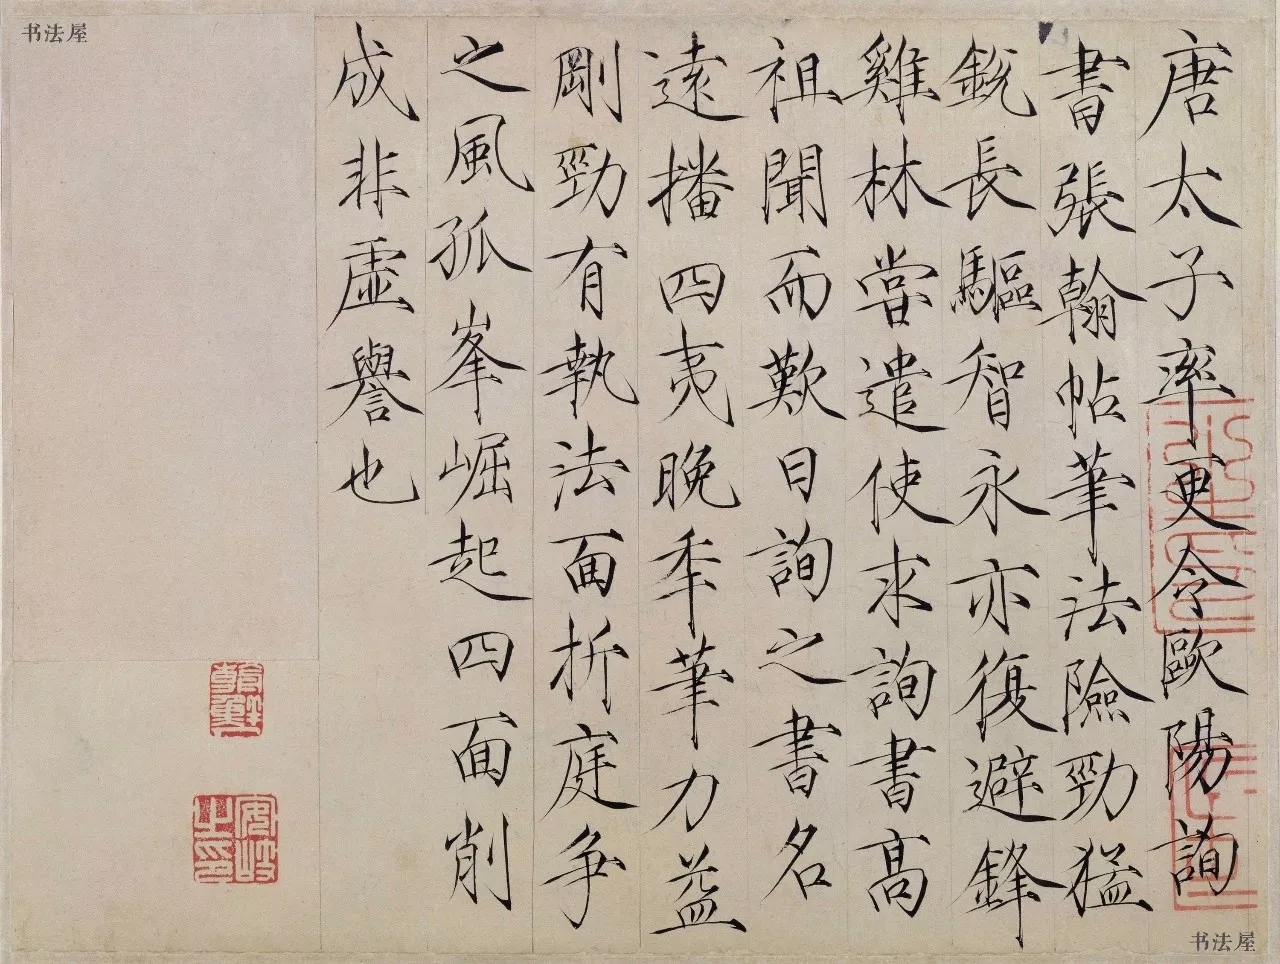 唐太子率更令歐陽詢
書張翰帖筆法險勁猛
銳長驅智永亦復避鋒
雞林嘗遣使求詢書高
祖聞而歎曰詢之書名
遠播四夷晚年筆力益
剛勁有執法面折庭争
之風孤峯崛起四面削
成非虛譽也
书法屋
安岐之印
书法屋